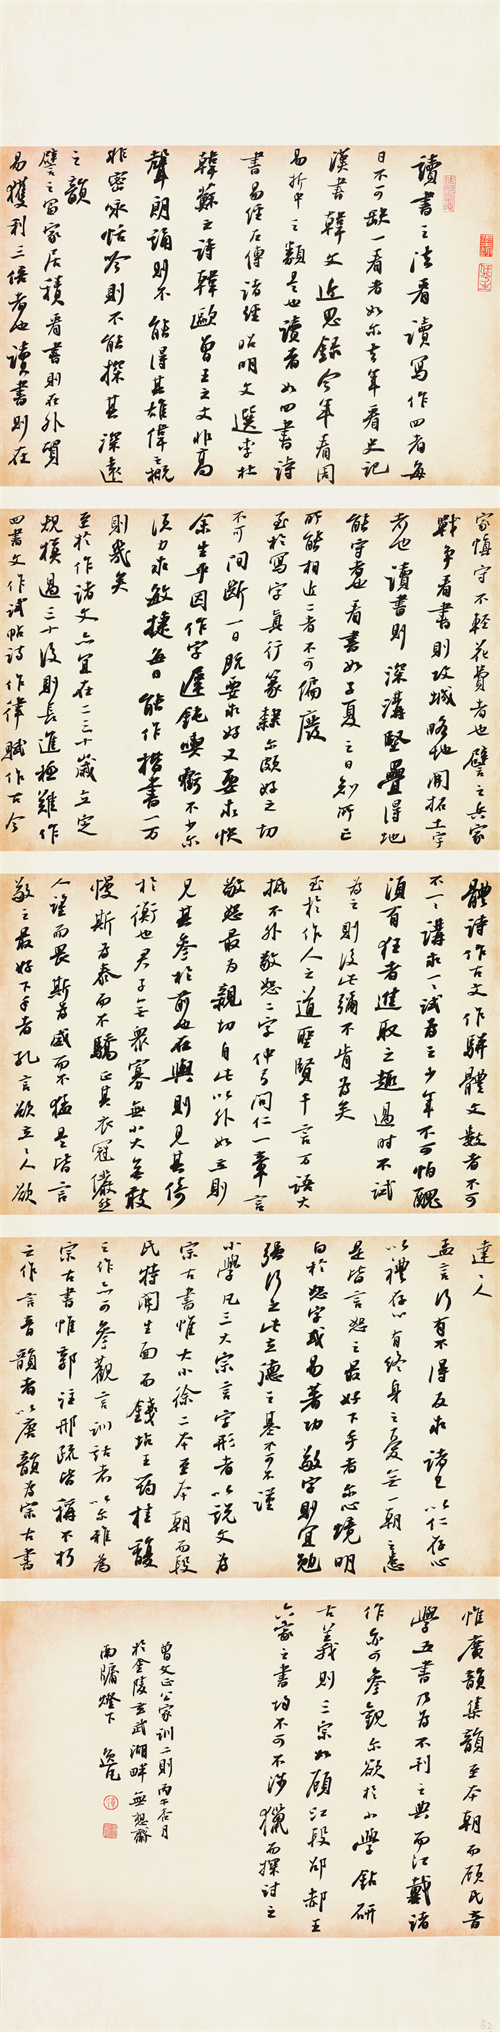 讀書之法看讀寫作四者每
日不可缺一看者如爾去年看史記
漢書韓文近思錄今年看周
易折中之類是也讀者如四書詩
書易經左傳諸經昭明文選李杜
韓蘇之詩韓歐曾王之文非高
聲朗誦則不能得其雄偉之概
非密詠恬吟則不能探其深遠
之韻
譬之富家居積看書則在外貿
易獲利三倍者也讀書則在
家慎守不輕花費者也譬之兵家
戰爭看書則攻城略地開拓土宇
者也讀書則深溝堅壘得地
能守者也看書如子夏之日知所亡
所能相近二者不可偏廢
至於寫字真行篆隸爾頗好之切
不可間斷一日既要求好又要求快
余生平因作字遲鈍喫虧不少爾
須力求敏捷每日能作楷書一萬
則幾矣
至於作諸文亦宜在二三十歲立定
規模過三十後則長進極難作
四書文作試帖詩作律賦作古今
體詩作古文作駢體文數者不可
不一一講求一一試為之少年不可怕醜
須有狂者進取之趣過時不試
為之則後此彌不肯為矣
至於作人之道聖賢千言萬語大
抵不外敬恕二字仲弓問仁一章言
敬恕最為親切自此以外如立則
見其參於前也在輿則見其倚
於衡也君子無眾寡無小大無敢
慢斯為泰而不驕正其衣冠儼然
人望而畏斯為威而不猛是皆言
敬之最好下手者孔言欲立立人欲
達達人
孟言行有不得反求諸己以仁存心
以禮存心有終身之憂無一朝之患
是皆言恕之最好下手者爾心境明
白於恕字或易著功敬字則宜勉
強行之此立德之基不可不謹
小學凡三大宗言字形者以說文為
宗古書惟大小徐二本至本朝而段
氏特開生面而錢坫王筠桂馥
之作亦可參觀言訓詁者以爾雅為
宗古書惟郭注邢疏皆稱不朽
之作言音韻者以廣韻為宗古書
惟廣韻集韻至本朝而顧氏音
學五書乃為不刊之典而江戴諸
作亦可參觀爾欲於小學鉆研
古義則三宗如顧江段邵郝王
六家之書均不可不涉獵而探討之
曾文正公家訓二則丙午杏月
於金陵玄武湖畔無想齋
南牖燈下